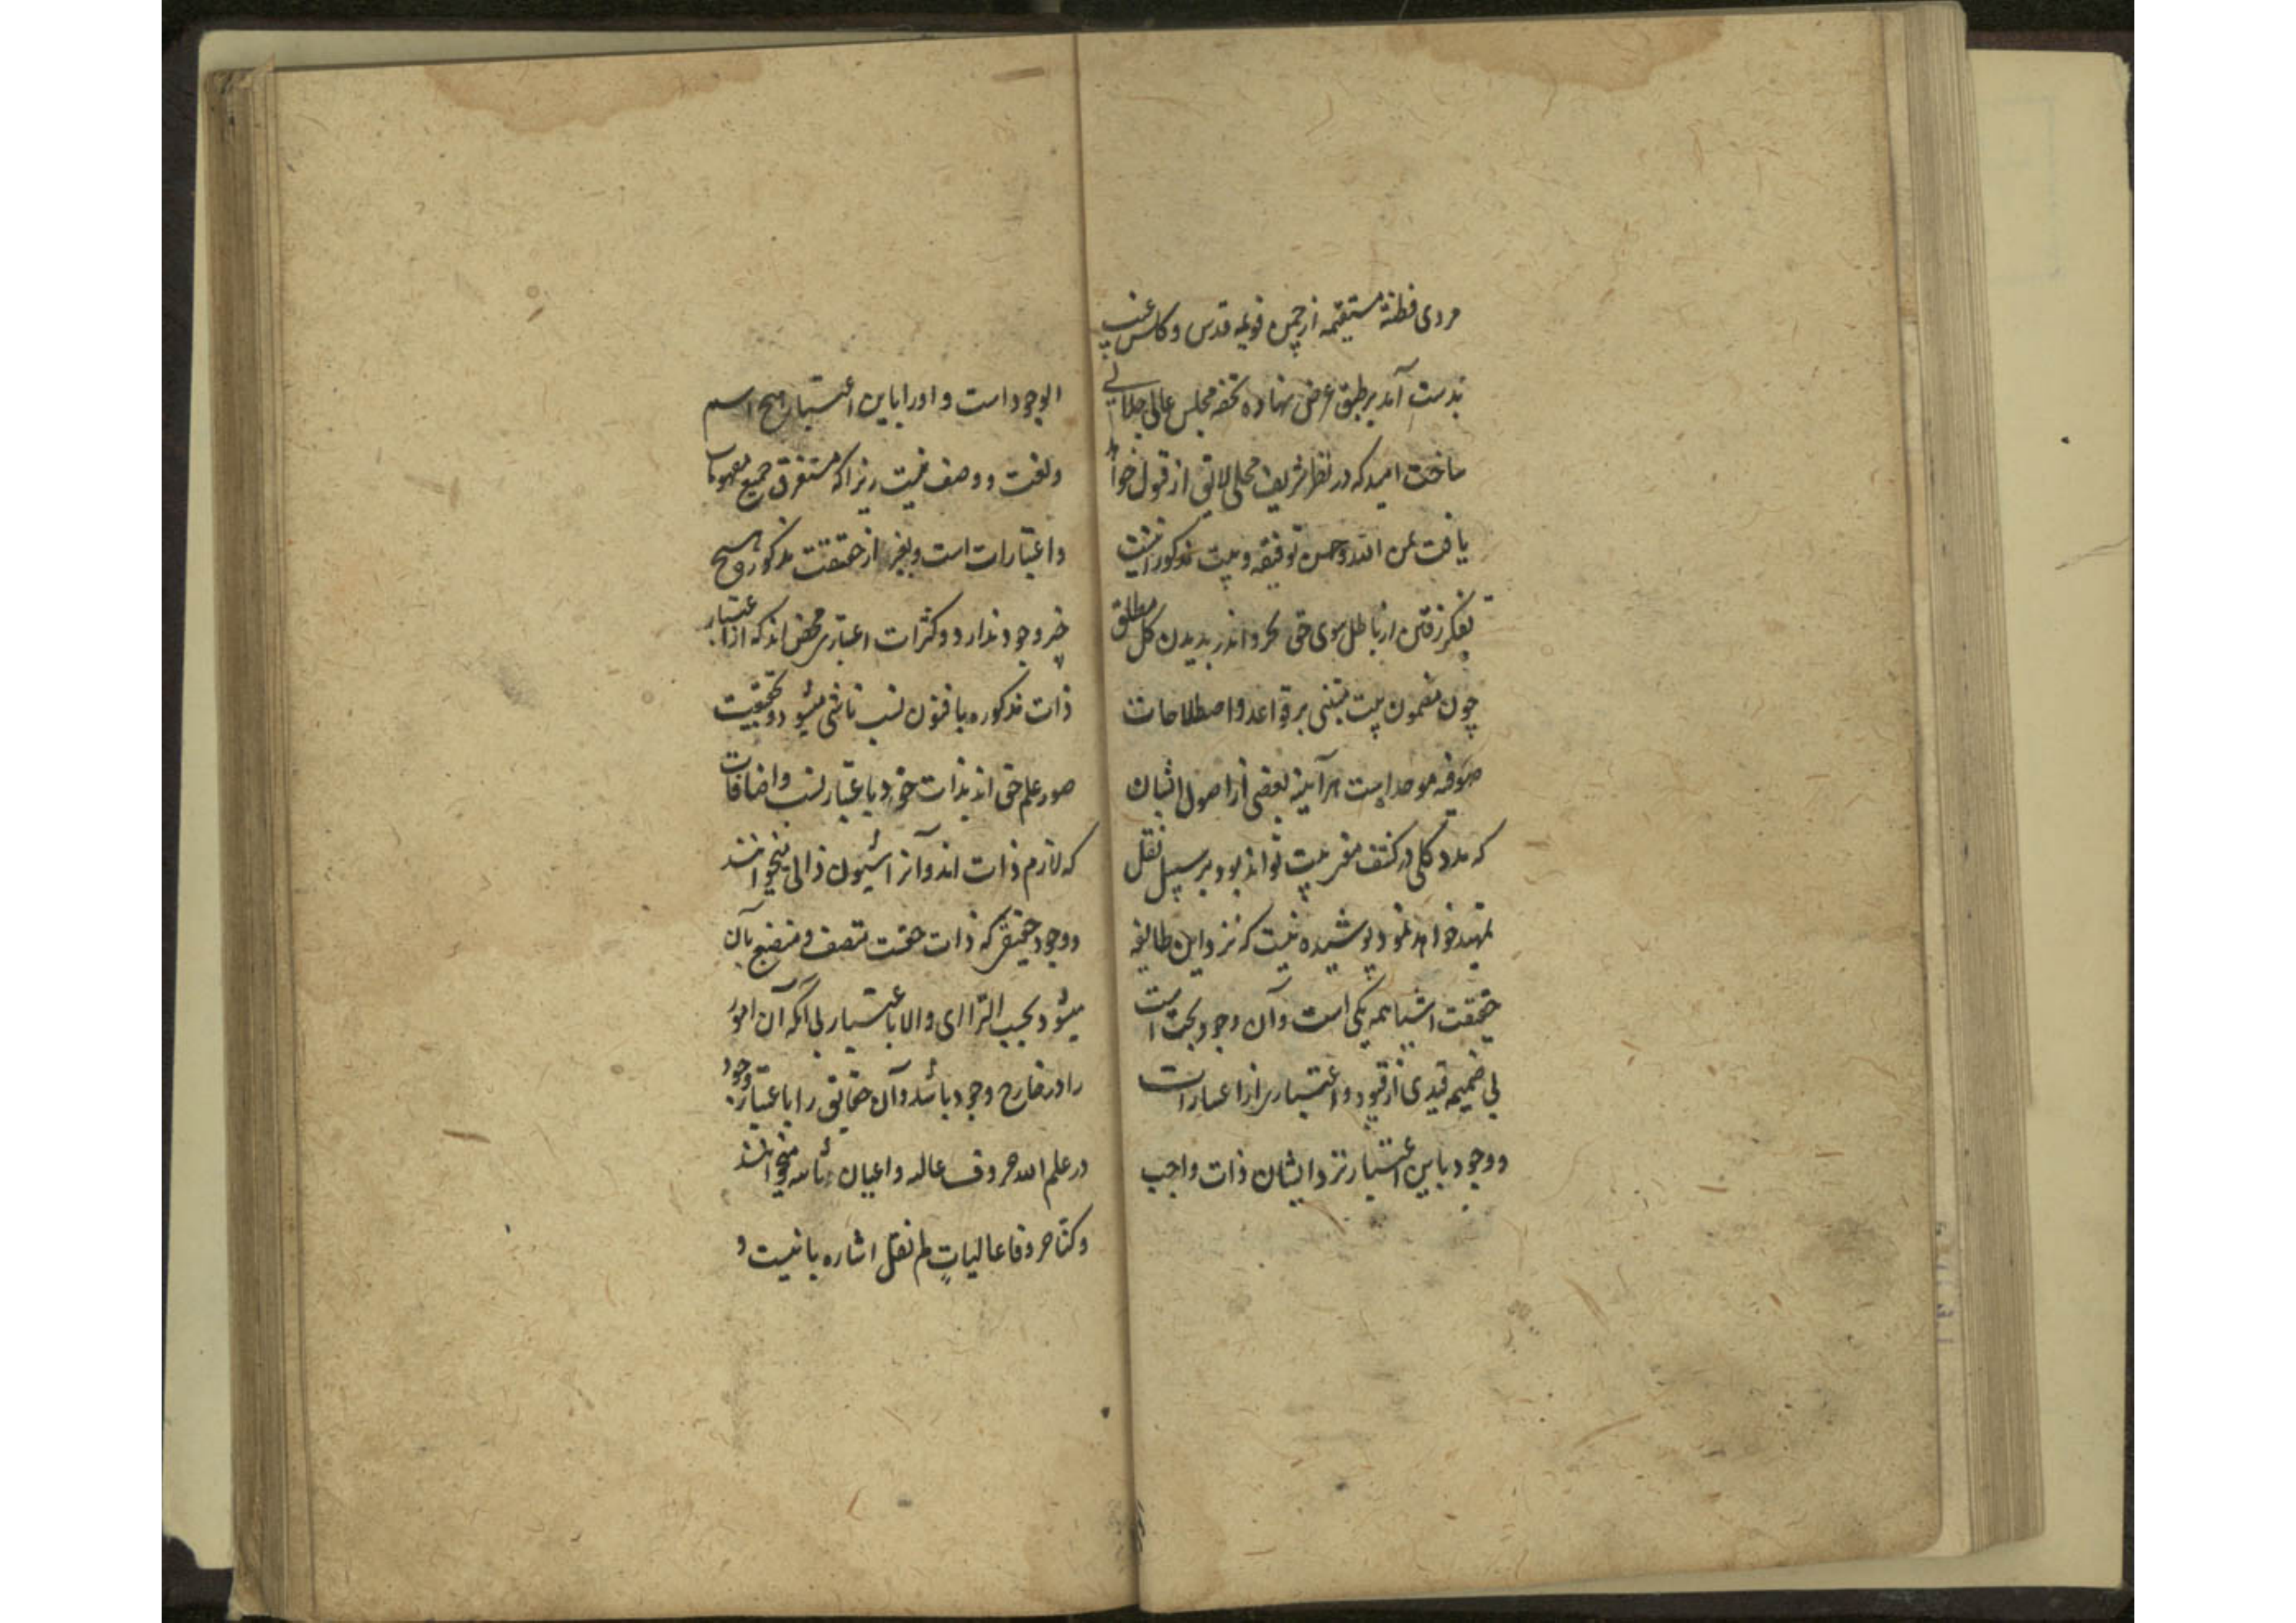 مردی فطنة مستقیمه از چمن قدس و کاس غیب
بدست آمد بر طبق عرض نهاده تحفه مجلس عالی جلالی
ساخت امید که در نظر شریف محلی لایق از قبول خواهد
یافت بمن الله و حسن توفیقه و بیت مذکور اینست
تفکر رفتن از باطل سوی حق بجزو اندر بدیدن کل مطلق
چون مضمون بیت مبتنی بر قواعد و اصطلاحات
صوفیه موحد است هر آینه بعضی از اصول ایشان
که مدد کلی در کشف بیت تواند بود بر سبیل نقل
تمهید خواهد نمود پوشیده نیست که نزد این طایفه
حقیقت اشیا همه یکی است و آن وجود بحت است
بی ضمیمه قیدی از قیود و اعتباری از اعتبارات
و وجود باین اعتبار نزد ایشان ذات واجب
الوجود است و او را باین اعتبار هیچ اسم
و لغت و وصف نیست زیرا که مستغرق جمیع
و اعتبارات است و بغیر از حقیقت مذکور هیچ
چیز وجود ندارد و کثرات اعتباری محض اند که از اعتبار
ذات مذکوره با فنون نسب ناشی میشود و حقیقت
صور علم حق اند بذات خود باعتبار نسب و اضافات
که لازم ذات اند و آنرا شیون ذاتی میخوانند
و وجود حقیقی که ذات حقست متصف و منصبغ بآن
میشود بحسب الترائی و الا باعتبار بی آنکه آن امور
را در خارج وجود باشد و آن حقایق را باعتبار وجود
در علم الله حروف عالیه و اعیان ثابته میخوانند
و کنا حروفا عالیات لم نقل اشاره بآنست و